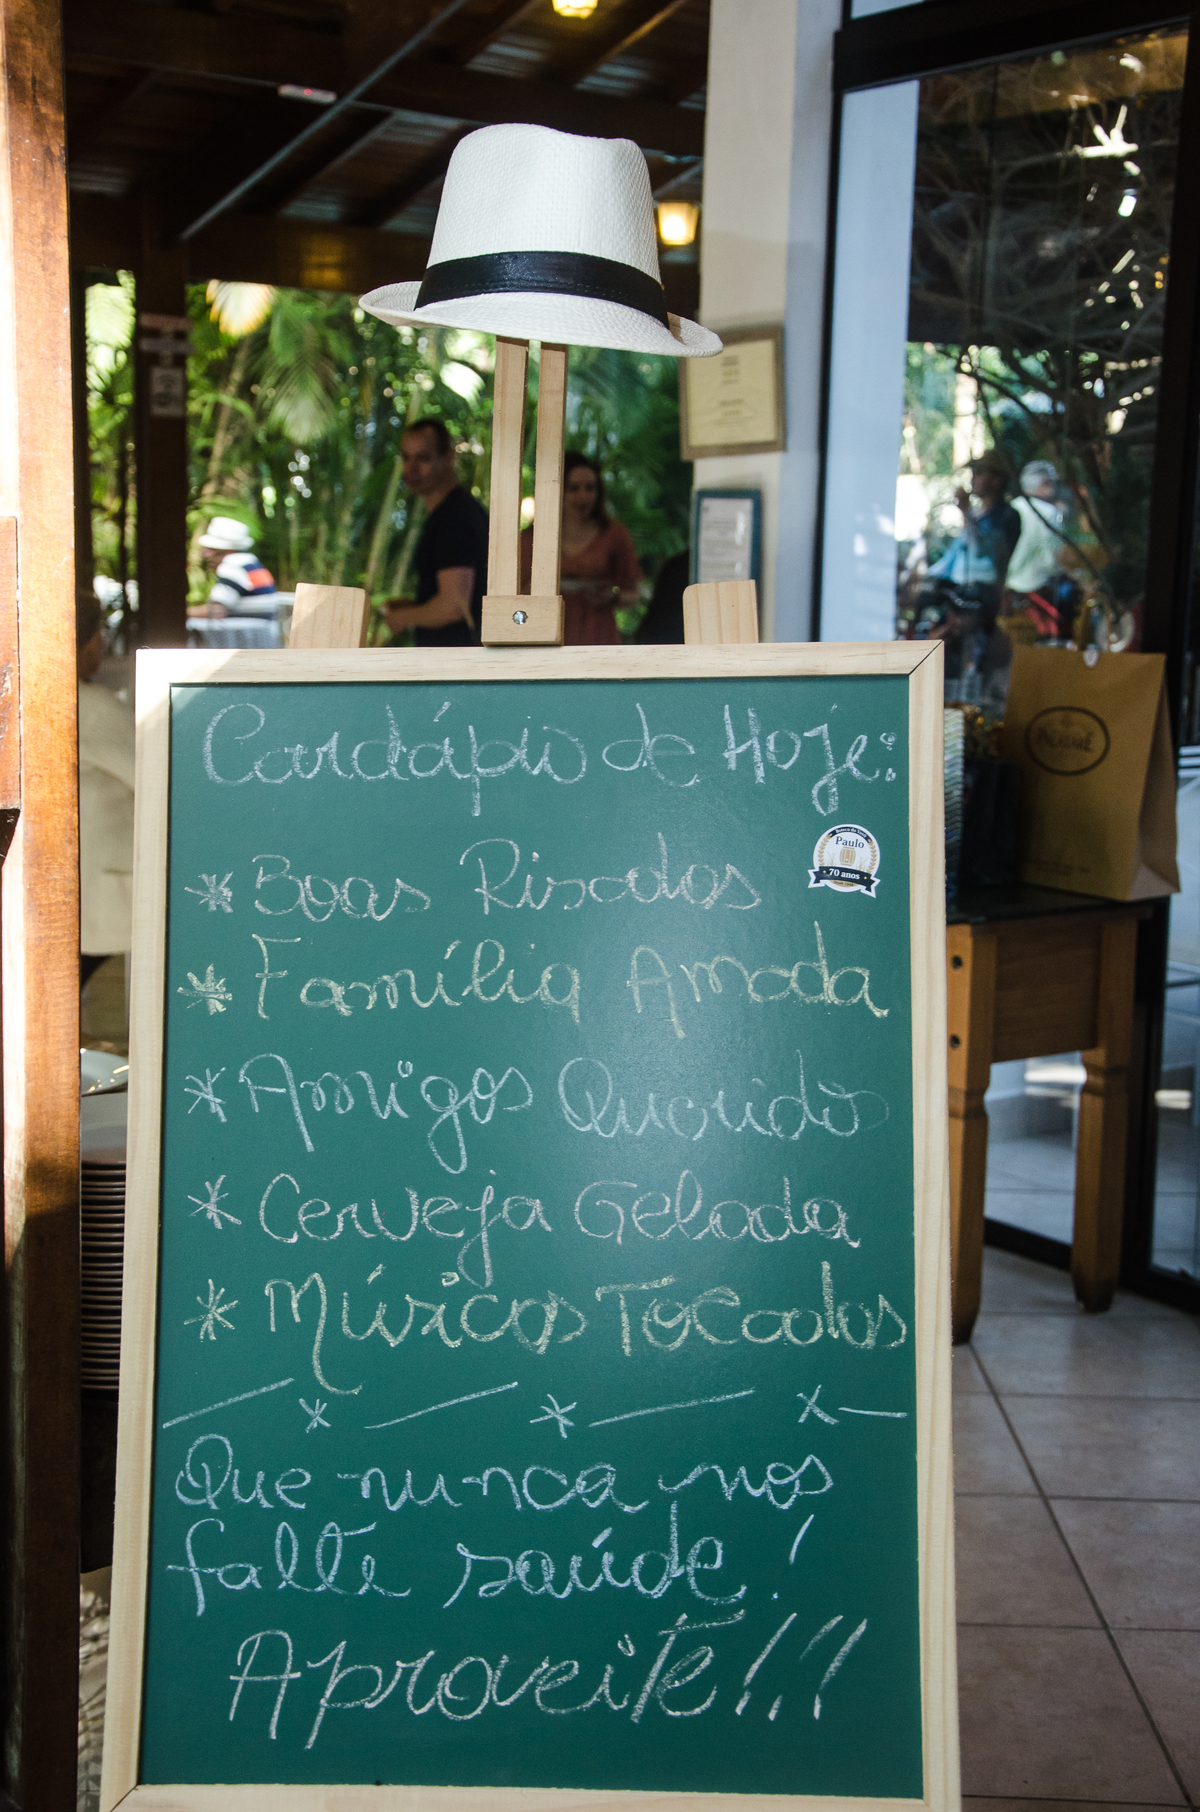 Cardápio de Hoje:
Paulo
70 anos
* Boas Risadas
* Família Amada
* Amigos Queridos
* Cerveja Gelada
* Músicas Tocadas
Que nunca nos
falte saúde!
Aproveite!!!